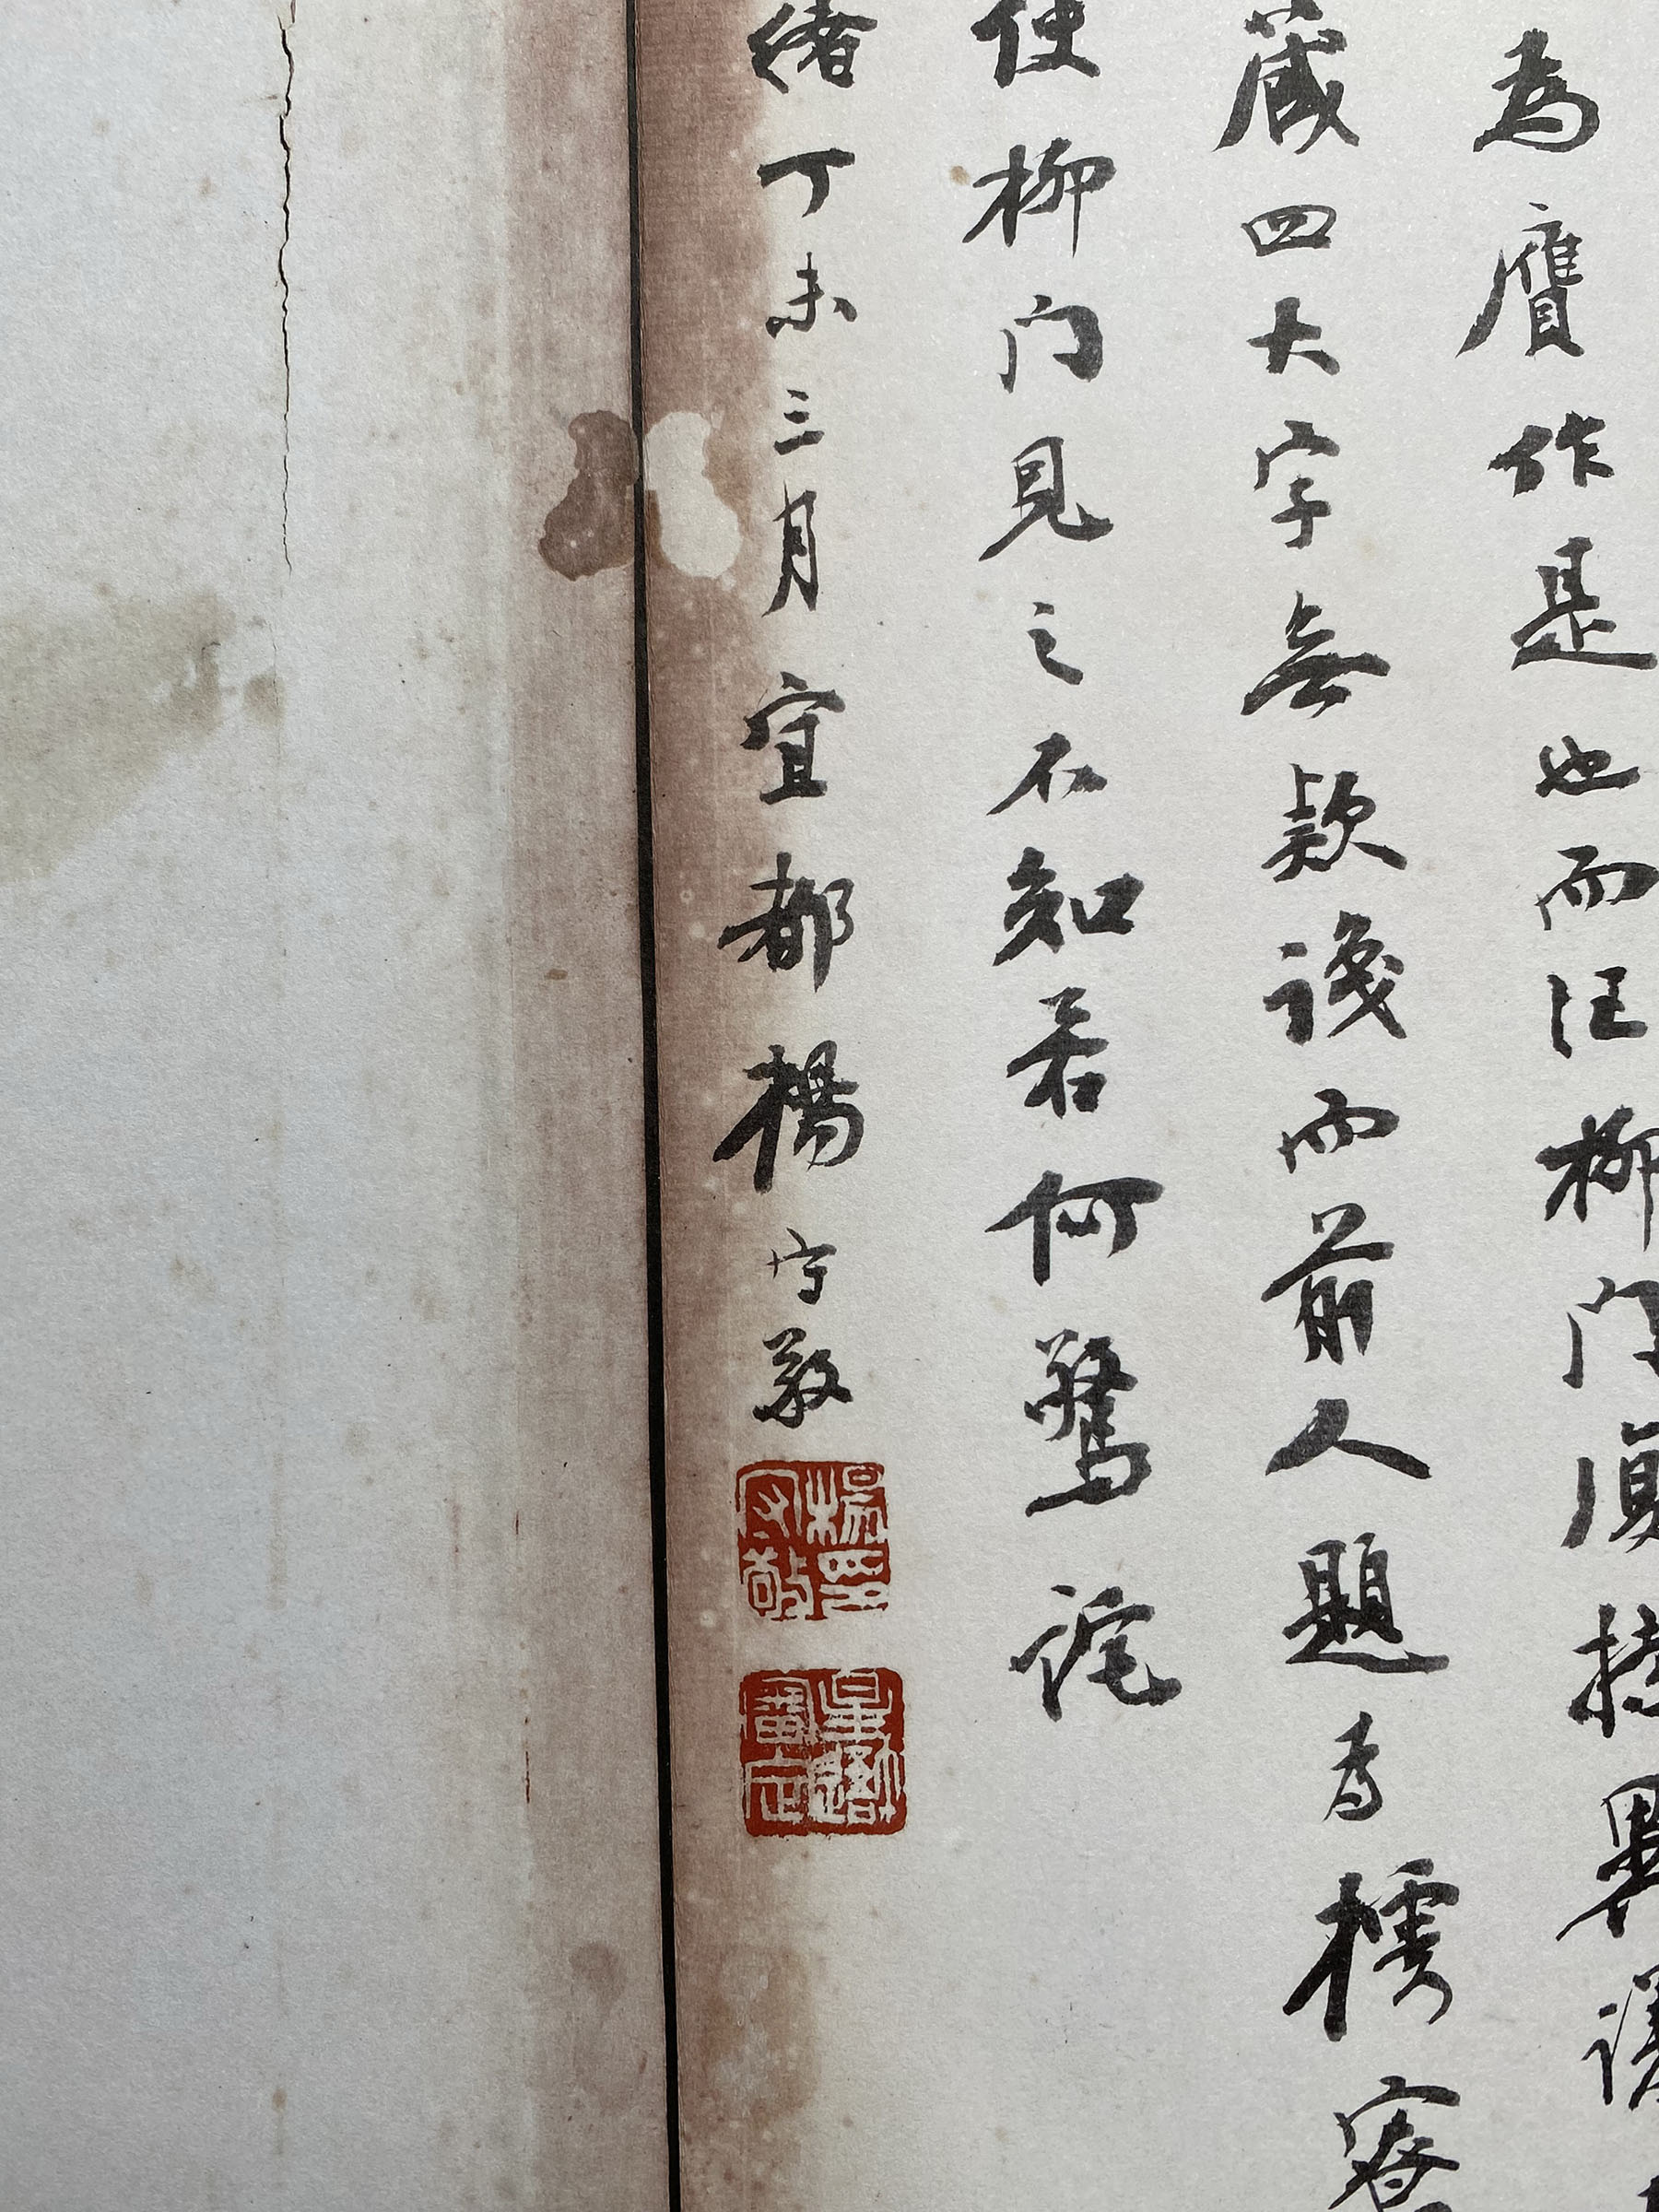 為贋作是也而汪柳門頋
藏四大字無款識而前人題為
使柳門見之不知若何驚詫
緒丁未三月宜都楊守敬
楊守敬印
星吾